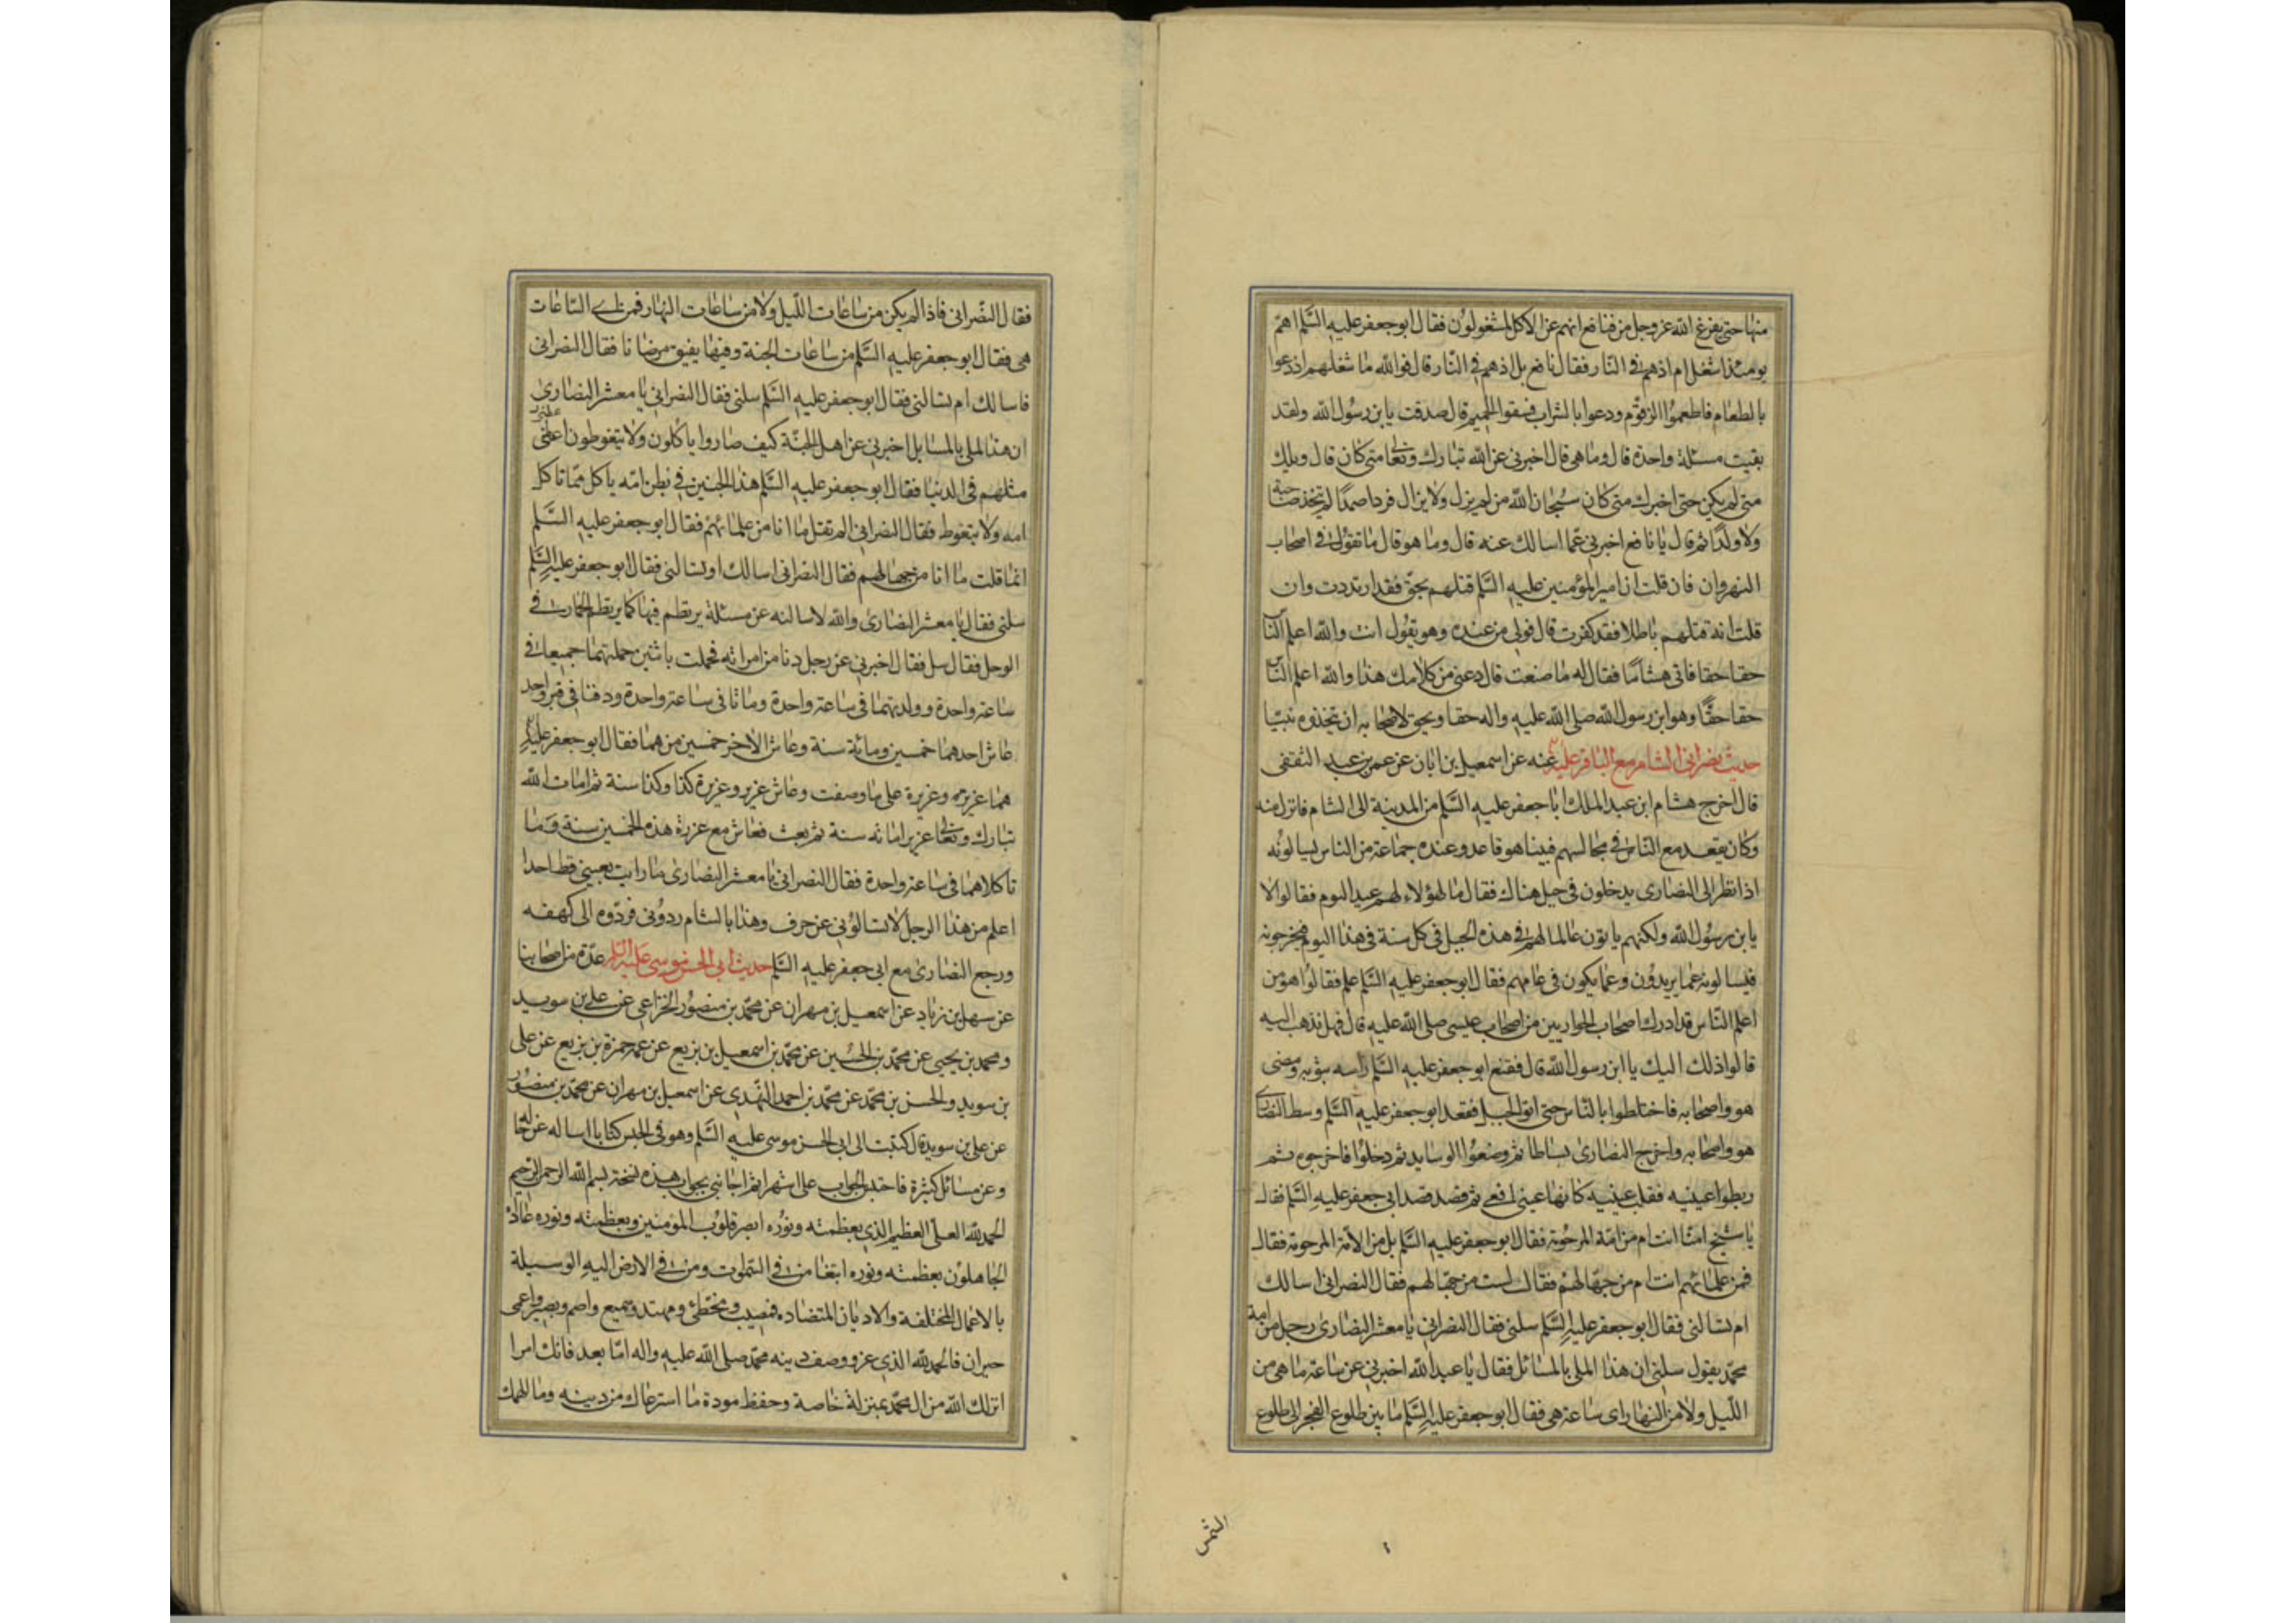 منها حتى يفرغ الله عز وجل من فقال نافع انهم عن الاكل لمشغولون فقال ابو جعفر عليه السلم اهم
يومئذ اشغل ام اذ هم فى النار فقال نافع بل اذ هم فى النار قال فوالله ما شغلهم اذ دعوا
بالطعام فاطعموا الزقوم ودعوا بالشراب فسقوا الحميم قال صدقت يابن رسول الله ولقد
بقيت مسئلة واحدة قال وما هى قال اخبرنى عن الله تبارك وتعالى متى كان قال ويلك
متى لم يكن حتى اخبرك متى كان سبحان الله من لم يزل ولا يزال فردا صمدا لم يتخذ صاحبة
ولا ولدا ثم قال يا نافع اخبرنى عما اسالك عنه قال وما هو قال ما تقول فى اصحاب
النهروان فان قلت ان امير المؤمنين عليه السلم قتلهم بحق فقد ارتددت وان
قلت انه قتلهم باطلا فقد كفرت قال فولى من عنده وهو يقول انت والله اعلم الناس
حقا حقا فاتى هشاما فقال له ما صنعت قال دعنى من كلامك هذا والله اعلم الناس
حقا حقا وهو ابن رسول الله صلى الله عليه واله حقا ويحق لاصحابه ان يتخذوه نبيا
حديث نصرانى الشام مع الباقر عليه عنه عن اسمعيل بن ابان عن عمر بن عبد الثقفى
قال اخرج هشام ابن عبد الملك ابا جعفر عليه السلم من المدينة الى الشام فانزل منه
وكان يقعد مع الناس فى مجالسهم فبينا هو قاعد وعنده جماعة من الناس يسالونه
اذا نظر الى النصارى يدخلون فى جبل هناك فقال ما لهؤلاء لهم عيد اليوم فقالوا لا
يابن رسول الله ولكنهم ياتون عالما لهم فى هذه الجبل فى كل سنة فى هذا اليوم فيخرجونه
فيسالونه عما يريدون وعما يكون فى عامهم فقال ابو جعفر عليه السلم علم فقالوا هو من
اعلم الناس قد ادرك اصحاب الحواريين من اصحاب عيسى صلى الله عليه قال فهل نذهب اليه
قالوا ذلك اليك يا ابن رسول الله قال فقنع ابو جعفر عليه السلم راسه بثوبه ومضى
هو واصحابه فاختلطوا بالناس حتى اتوا الجبل فقعد ابو جعفر عليه السلم وسط النصارى
هو واصحابه واخرج النصارى بساطا ثم وضعوا الوسايد ثم دخلوا فاخرجوه ثم
ربطوا عينيه فقلب عينيه كانها عينى افعى ثم قصد قصد ابى جعفر عليه السلم فقال
يا شيخ امنا انت ام من امة المرحومة فقال ابو جعفر عليه السلم بل من الامة المرحومة فقال
فمن علمائهم انت ام من جهالهم فقال لست من جهالهم فقال النصرانى اسالك
ام تسالنى فقال ابو جعفر عليه السلم سلنى فقال النصرانى يا معشر النصارى رجل من امة
محمد يقول سلنى ان هذا الملى بالمسائل فقال يا عبد الله اخبرنى عن ساعة ما هى من
الليل ولا من النهار اى ساعة هى فقال ابو جعفر عليه السلم ما بين طلوع الفجر الى طلوع
الشمس
فقال النصرانى فاذا لم يكن من ساعات الليل ولا من ساعات النهار فمن اى الساعات
هى فقال ابو جعفر عليه السلم من ساعات الجنة وفيها يفيق مرضانا فقال النصرانى
فاسالك ام تسالنى فقال ابو جعفر عليه السلم سلنى فقال النصرانى يا معشر النصارى
ان هذا لملى بالمسايل اخبرنى عن اهل الجنة كيف صاروا ياكلون ولا يتغوطون اعطنى
مثلهم فى الدنيا فقال ابو جعفر عليه السلم هذا الجنين فى بطن امه ياكل مما تاكل
امه ولا يتغوط فقال النصرانى الم تقل ما انا من علمائهم فقال ابو جعفر عليه السلم
انما قلت ما انا من جهالهم فقال النصرانى اسالك او تسالنى فقال ابو جعفر عليه السلم
سلنى فقال يا معشر النصارى والله لاسالنه عن مسئلة يرتطم فيها كما يرتطم الحمار فى
الوحل فقال سل فقال اخبرنى عن رجل دنا من امراته فحملت باثنين حملتهما جميعا فى
ساعة واحدة وولدتهما فى ساعة واحدة وماتا فى ساعة واحدة ودفنا فى قبر واحد
عاش احدهما خمسين ومائة سنة وعاش الاخر خمسين من هما فقال ابو جعفر عليه
هما عزير وعزيرة على ما وصفت وعاش عزير وعزيرة كذا وكذا سنة ثم امات الله
تبارك وتعالى عزير امائه سنة ثم بعث فعاش مع عزرة هذه الخمسين سنة وما
تا كلاهما فى ساعة واحدة فقال النصرانى يا معشر النصارى ما رايت بعينى قط احدا
اعلم من هذا الرجل لا تسالونى عن حرف وهذا بالشام ردونى فردوه الى كهفه
ورجع النصارى مع ابى جعفر عليه السلم حديث ابى الحسن موسى عليه السلم عدة من اصحابنا
عن سهل بن زياد عن اسمعيل بن مهران عن محمد بن منصور الخزاعى عن على بن سويد
ومحمد بن يحيى عن محمد بن الحسين عن محمد بن اسمعيل بن بزيع عن عمر حمزة بن بزيع عن على
بن سويد والحسن بن محمد عن محمد بن احمد النهدى عن اسمعيل بن مهران عن محمد بن منصور
عن على بن سويد قال كتبت الى ابى الحسن موسى عليه السلم وهو فى الحبس كتابا اساله عن حاله
وعن مسائل كثيرة فاحتبس الجواب على اشهر ثم اجابنى بجواب هذه نسخته بسم الله الرحمن الرحيم
الحمد لله العلى العظيم الذى بعظمته ونوره ابصر قلوب المؤمنين وبعظمته ونوره عاداه
الجاهلون بعظمته ونوره ابتغا من فى السموت ومن فى الارض اليه الوسيلة
بالاعمال المختلفة والاديان المتضاده فمصيب ومخطئ ومهتد وسميع واصم وبصير واعمى
حيران فالحمد لله الذى عز ووصف دينه محمد صلى الله عليه واله اما بعد فانك امرا
انزلك الله من ال محمد بمنزلة خاصة وحفظ مودة ما استرعاك من دينه وما الهمك